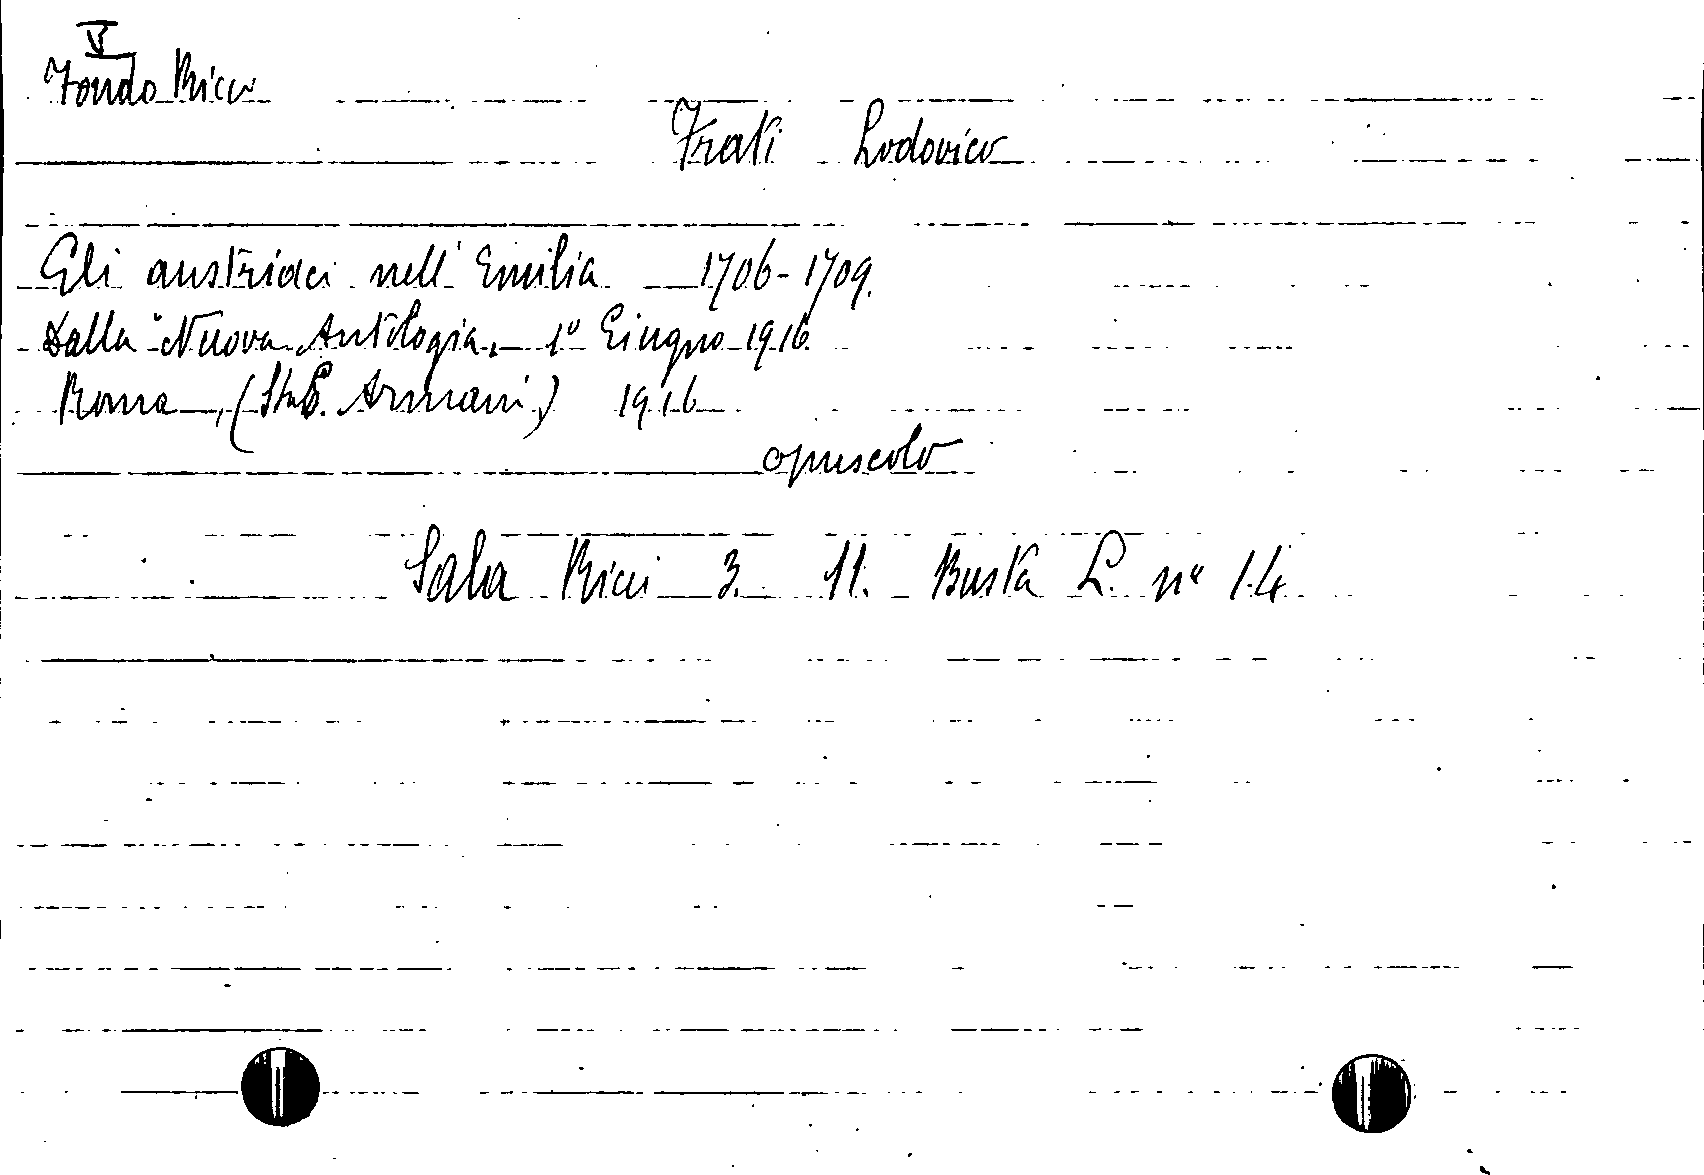 V
Fondo Ricci
Frati Lodovico
Gli austriaci nell'Emilia 1706-1709.
Dalla "Nuova Antologia, 1° Giugno 1916
Roma, (Stab. Armani) 1916
opuscolo
Sala Ricci 3. 11. Busta L. n° 14